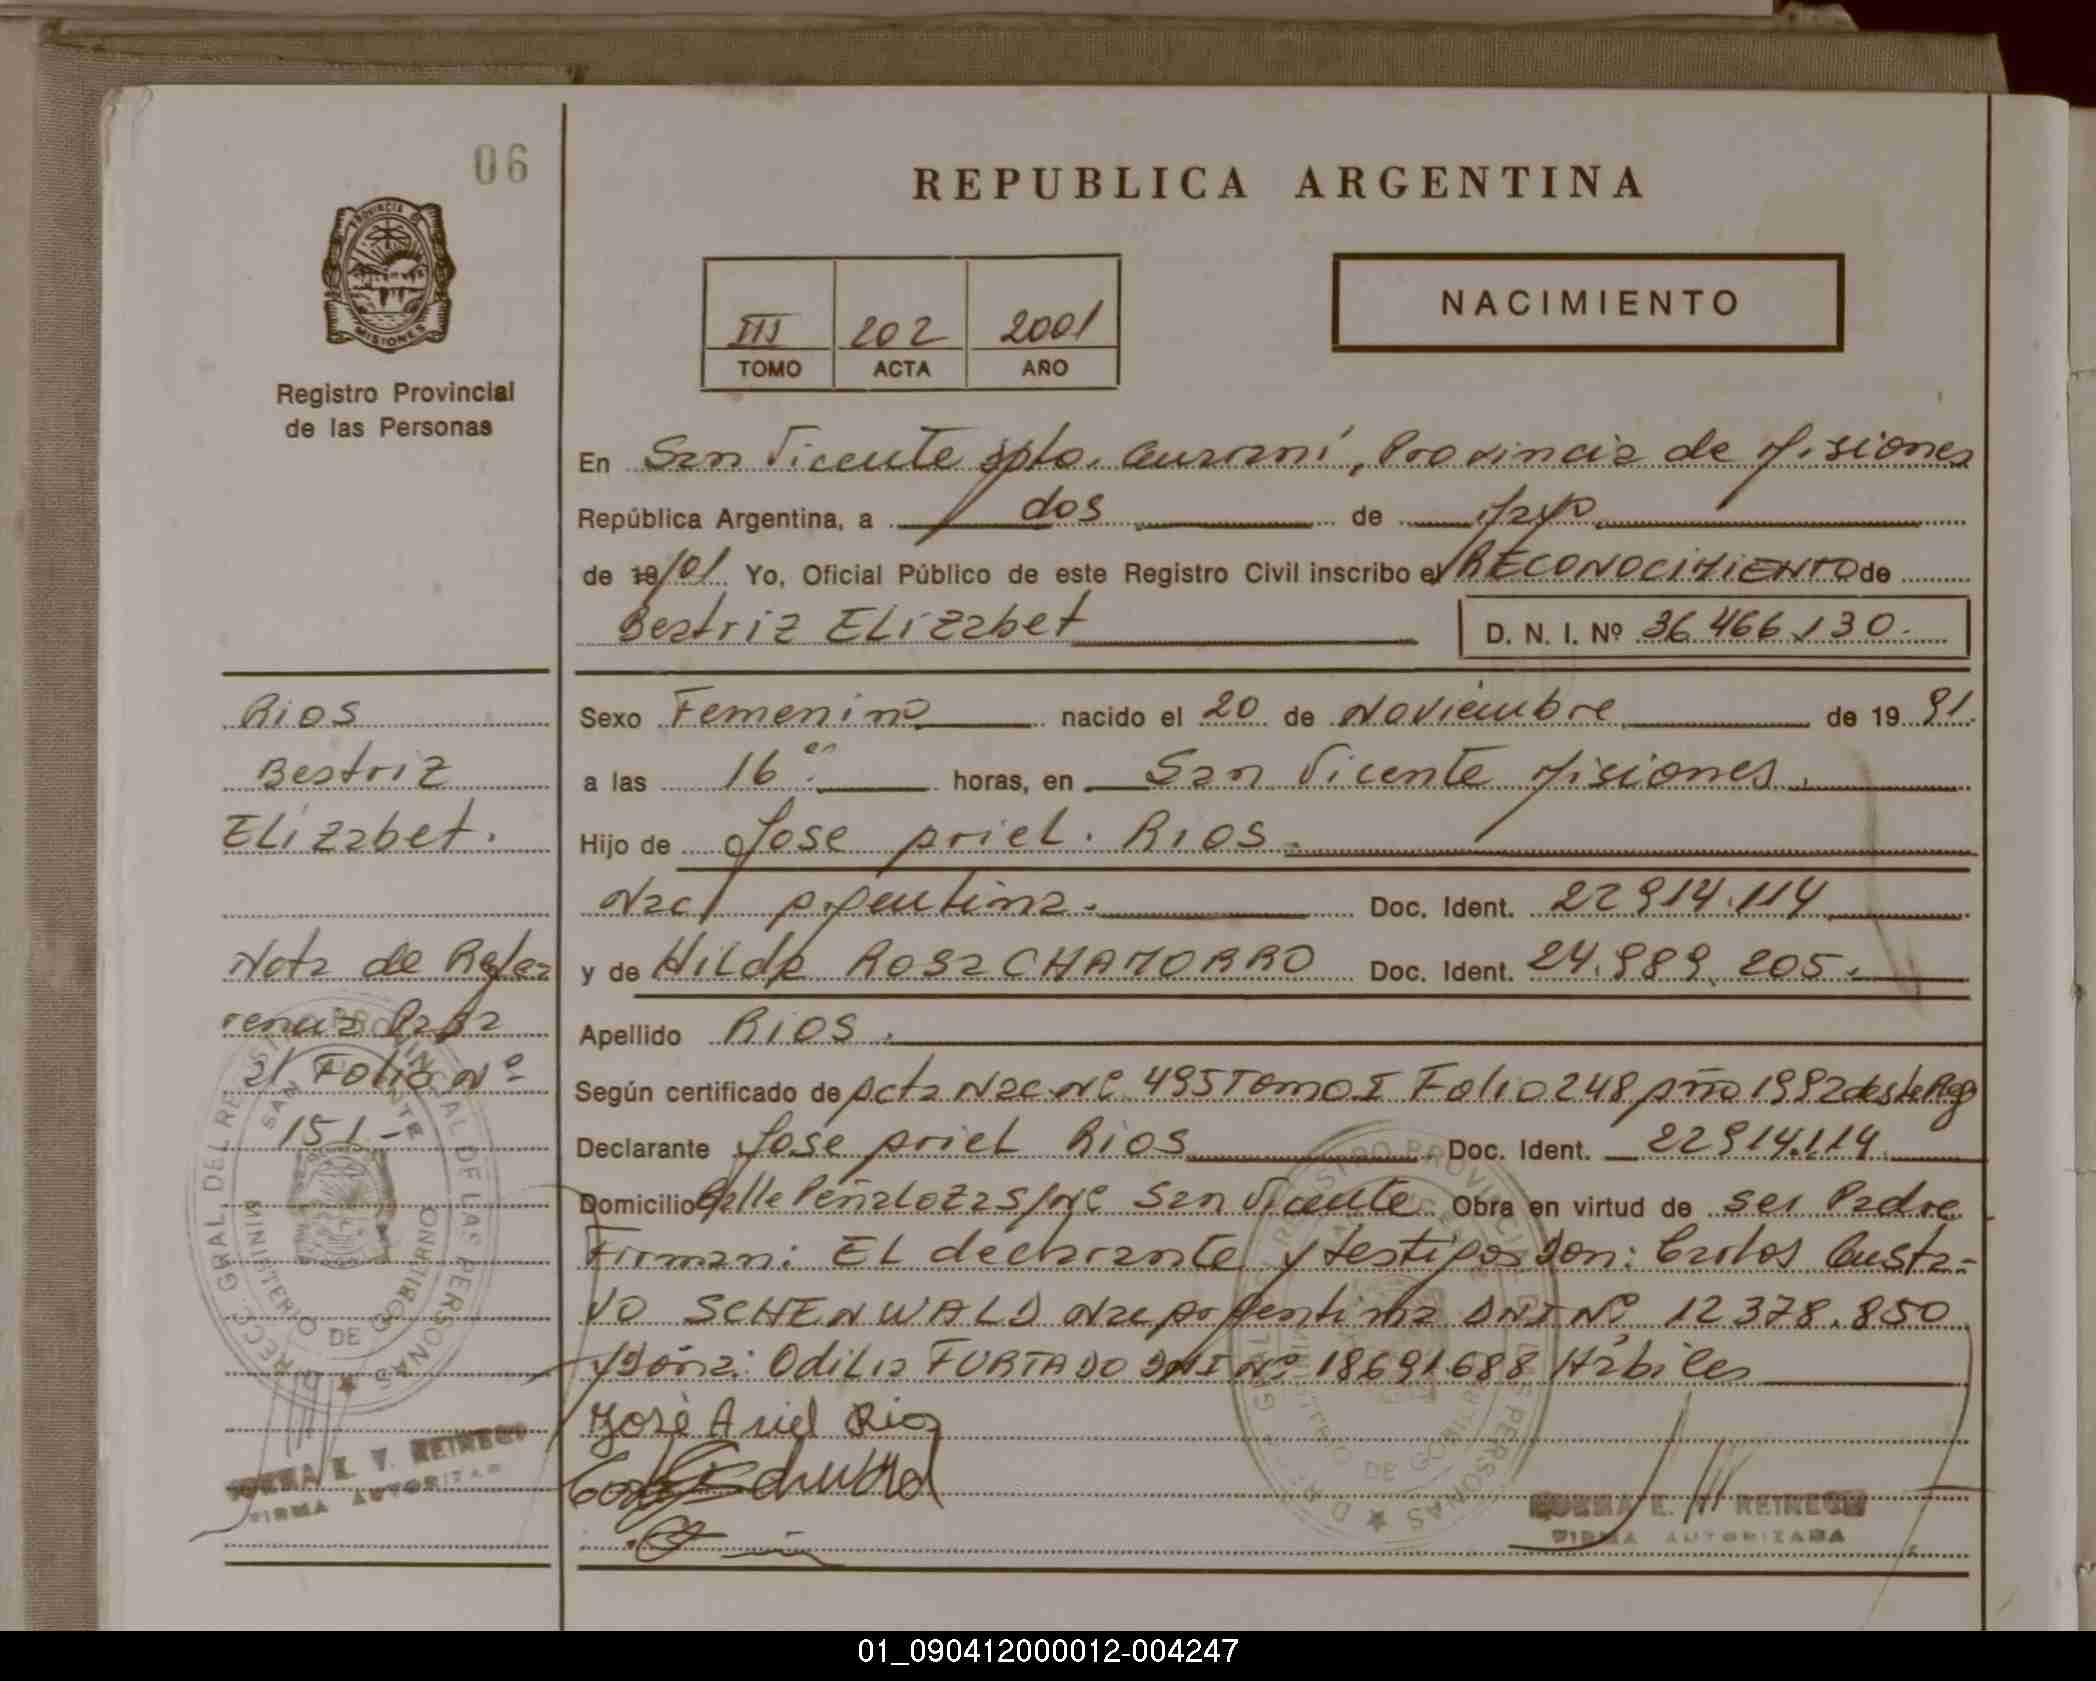 06
REPUBLICA ARGENTINA
PROVINCIA DE
MISIONES
NACIMIENTO
III 202 2001
TOMO ACTA AÑO
Registro Provincial
de las Personas
En San Vicente Dpto. Guaraní, Provincia de Misiones
República Argentina, a dos de Mayo
de 19/01 Yo, Oficial Público de este Registro Civil inscribo el RECONOCIMIENTO de
Beatriz ELizabet D. N. I. Nº 36.466.130.
Rios
Beatriz
ELizabet.
Nota de Refe
rencia Pasa
al Folio Nº
151-
Sexo Femenino nacido el 20 de Noviembre de 19 91.
a las 16 horas, en San Vicente Misiones.
Hijo de Jose Ariel. Rios.
Nac Argentina. Doc. Ident. 22914.114
y de Hilda Rosa CHAMORRO Doc. Ident. 24.989.205.
Apellido Rios.
Según certificado de Acta Nac Nº 495 Tomo I Folio 248 Año 1992 deste Reg
Declarante Jose Ariel Rios Doc. Ident. 22914.114
Domicilio Calle Peñaloza S/Nº San Vicente Obra en virtud de ser Padre
Firman: EL declarante y testigos Don: Carlos Gusta-
vo SCHENWALD Nac Argentina DNI Nº 12378.850
y Doña: Odilia FURTADO DNI Nº 18691688 Hábiles
José Ariel Rios
NORMA E. V. REINECK
FIRMA AUTORIZADA
NORMA E. V. REINECK
FIRMA AUTORIZADA
DIRECC. GRAL. DEL REGISTRO PROVINCIAL DE LAS PERSONAS
SAN VICENTE
MINISTERIO DE GOBIERNO
01_090412000012-004247